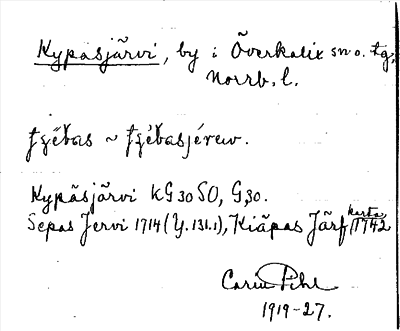 Kypäsjärvi, by i Överkalix sn o. tg,
Norrb. l.
Kypäsjärvi KG 30 SO, G 30.
Sepas Jervi 1714 (Y. 131.1), Kiäpas Järf karta 1742
Carin Pihl
1919-27.